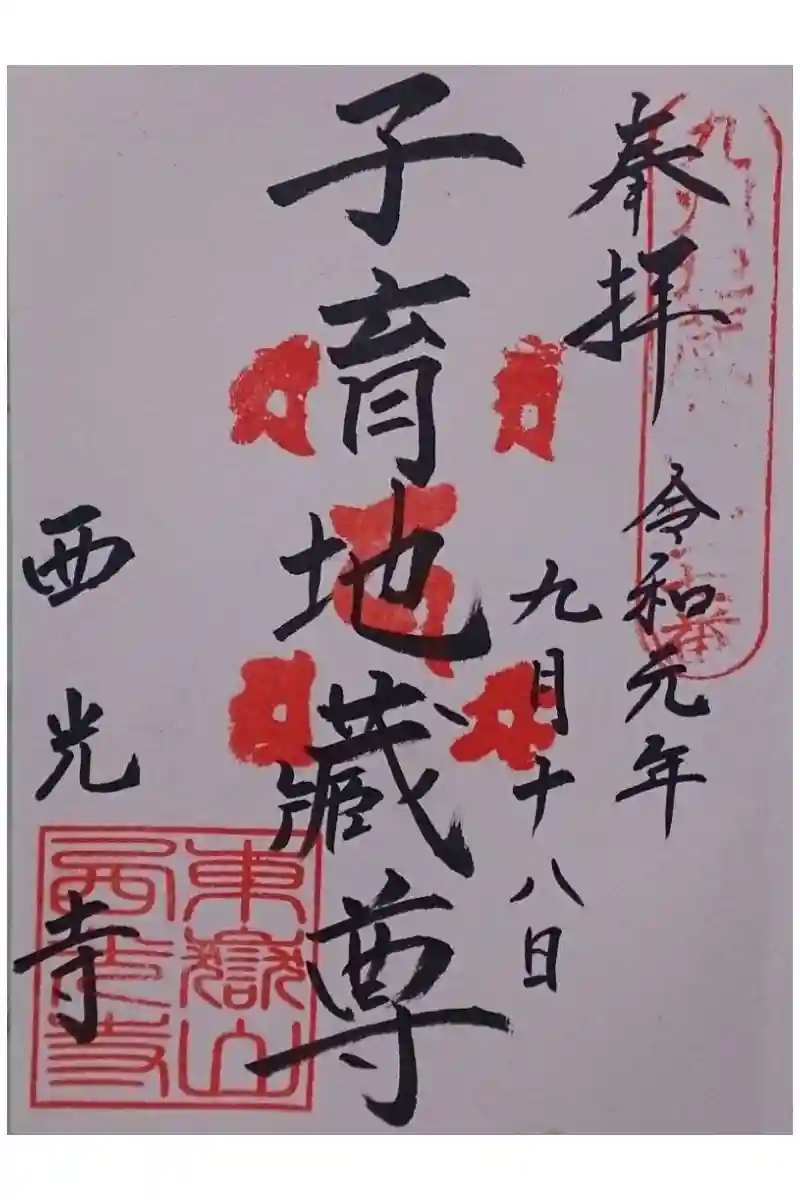 奉拝 令和元年
九月十八日
子育地蔵尊
西光寺
東嶽山
西光寺